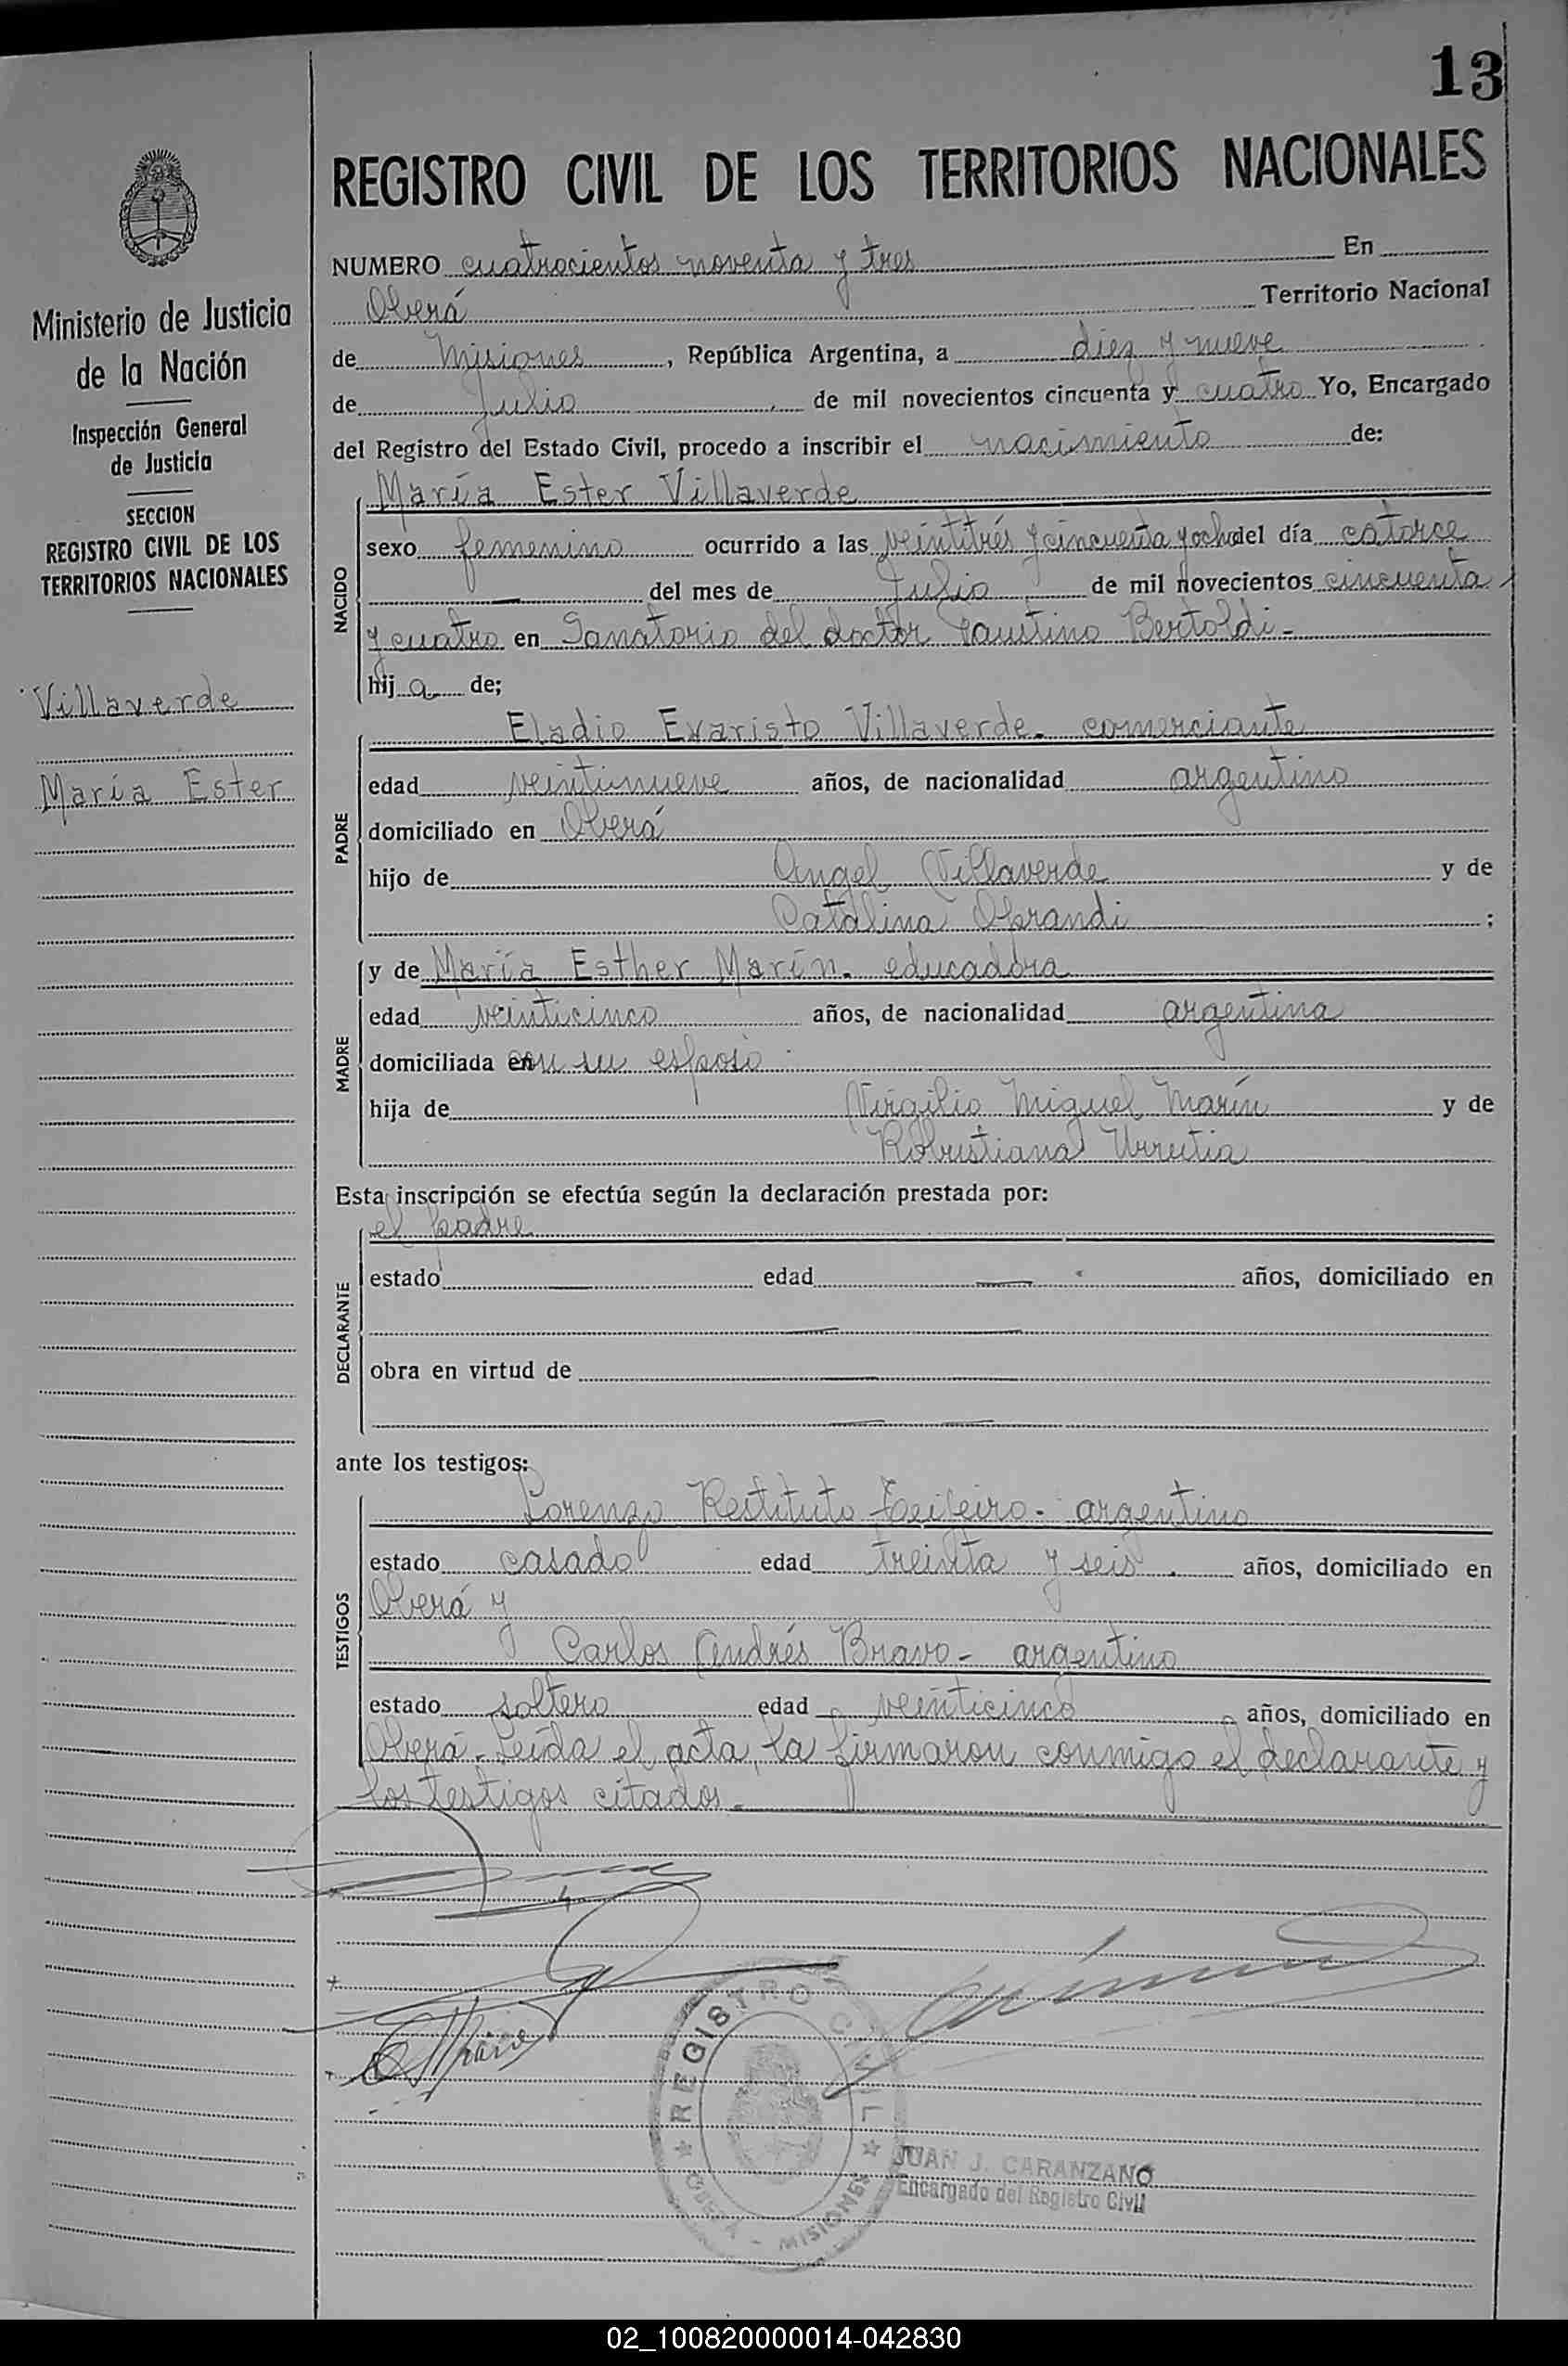 13
REGISTRO CIVIL DE LOS TERRITORIOS NACIONALES
Ministerio de Justicia
de la Nación
Inspección General
de Justicia
SECCION
REGISTRO CIVIL DE LOS
TERRITORIOS NACIONALES
Villaverde
María Ester
NUMERO cuatrocientos noventa y tres En
Oberá Territorio Nacional
de Misiones, República Argentina, a diez y nueve
de Julio de mil novecientos cincuenta y cuatro Yo, Encargado
del Registro del Estado Civil, procedo a inscribir el nacimiento de:
NACIDO
María Ester Villaverde
sexo femenino ocurrido a las veintitrés y cincuenta y ocho del día catorce
del mes de Julio de mil novecientos cincuenta
y cuatro en Sanatorio del doctor Faustino Bertoldi-
hija de;
PADRE
Eladio Evaristo Villaverde. comerciante
edad veintinueve años, de nacionalidad argentino
domiciliado en Oberá
hijo de Angel Villaverde y de
Catalina ;
MADRE
y de María Esther Marín. educadora
edad veinticinco años, de nacionalidad argentina
domiciliada en con su esposo
hija de Virgilio Miguel Marín y de
Robustiana Urrutia
Esta inscripción se efectúa según la declaración prestada por:
DECLARANTE
el padre
estado edad años, domiciliado en
obra en virtud de
ante los testigos:
TESTIGOS
Lorenzo Restituto - argentino
estado casado edad treinta y seis años, domiciliado en
Oberá y
Carlos Andrés Bravo - argentino
estado soltero edad veinticinco años, domiciliado en
Oberá. Leída el acta, la firmaron conmigo el declarante y
los testigos citados.-
REGISTRO CIVIL
OBERÁ - MISIONES
JUAN J. CARANZANO
Encargado del Registro Civil
02_100820000014-042830